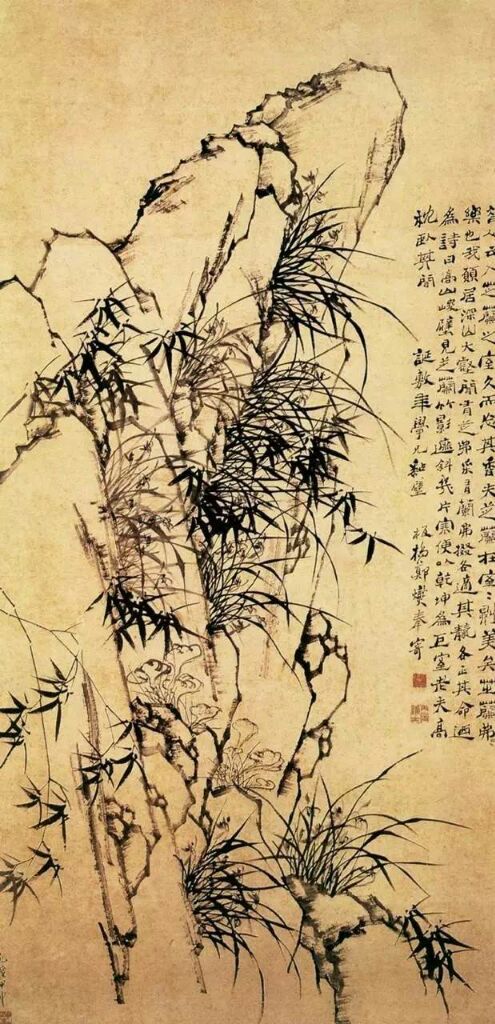 昔人云入芝蘭之室久而忘其香夫芝蘭在室:則美矣芝蘭弗
樂也我願居深山大壑間有芝弗采有蘭弗掇各適其各正其命迺
為詩曰高山峻壁見芝蘭竹影遮斜幾片寒便以乾坤為巨室老夫高
枕臥其間 誕敷年學兄 板橋鄭燮奉寄